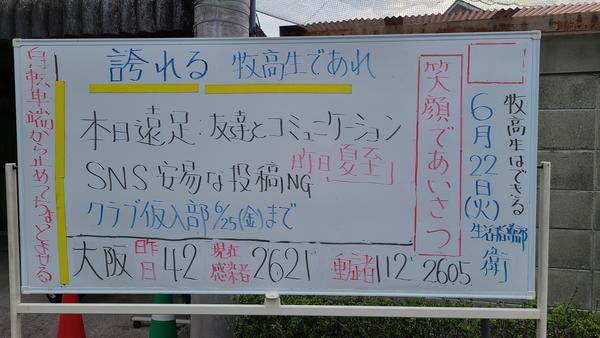 牧高生はできる
6月22日(火)
生活指導部 衛
笑顔であいさつ
誇れる 牧高生であれ
本日遠足:友達とコミュニケーション
SNS 安易な投稿NG
昨日「夏至」
クラブ仮入部 6/25(金)まで
大阪 昨日 42 現在感染者 2621 重症者 112 2605
自転車端から止めてちょっとよせる